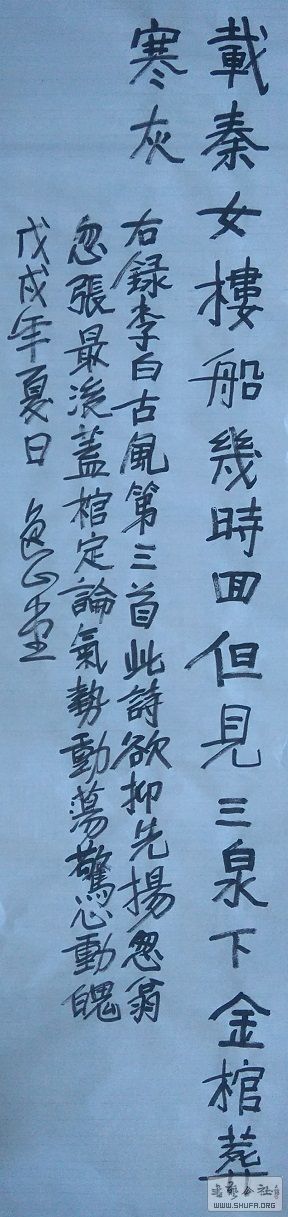 載秦女樓船幾時回但見三泉下金棺葬
寒灰
右録李白古風第三首此詩欲抑先揚忽翕
忽張最後蓋棺定論氣勢動蕩驚心動魄
戊戌年夏日
WWW.SHUFA.ORG